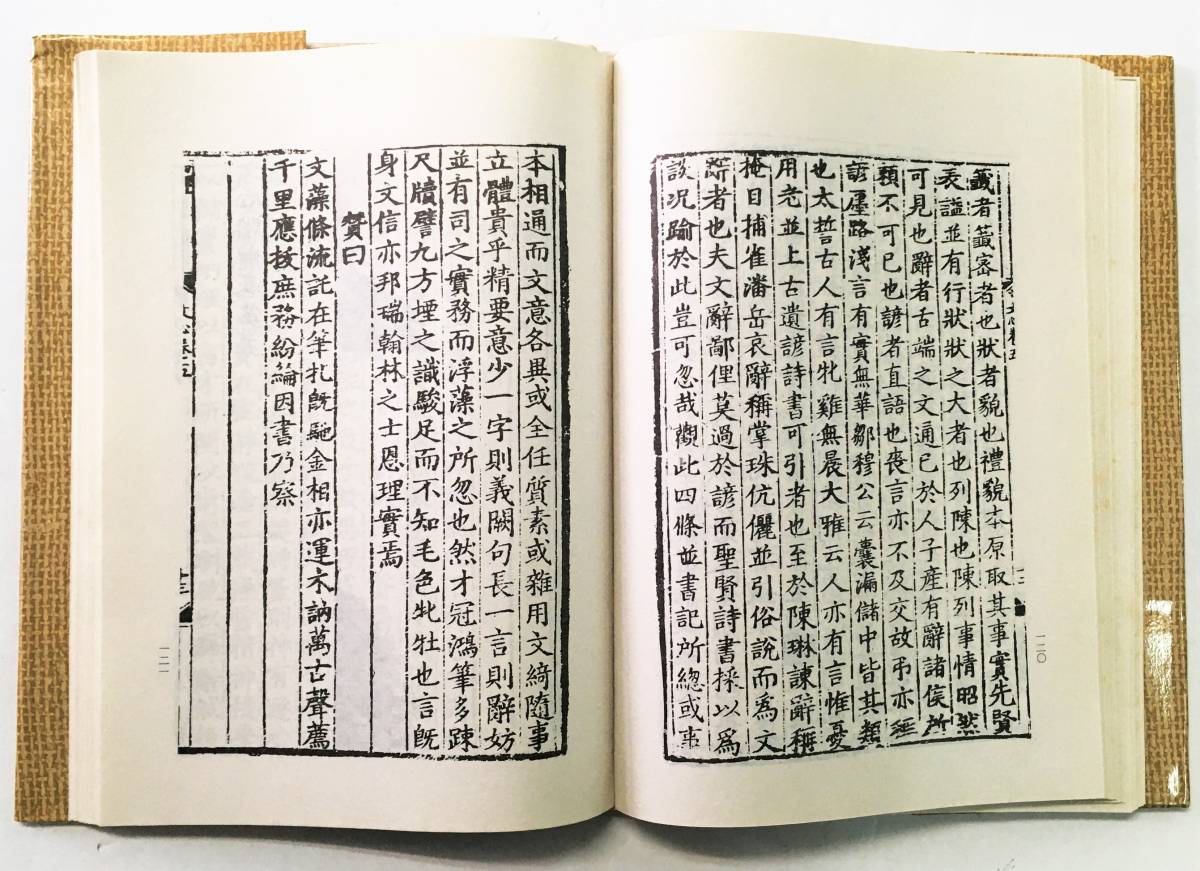 籤者籤密者也狀者貌也禮貌本原取其事實先賢
表謚並有行狀狀之大者也列陳也陳列事情昭然
可見也辭者舌端之文通已於人子產有辭諸侯所
賴不可已也諺者直語也喪言亦不及文故弔亦稱
諺廛路淺言有實無華鄒穆公云囊漏儲中皆其類
也太誓古人有言牝雞無晨大雅云人亦有言惟憂
用老並上古遺諺詩書可引者也至於陳琳諫辭稱
掩目捕雀潘岳哀辭稱掌珠伉儷並引俗說而為文
辭者也夫文辭鄙俚莫過於諺而聖賢詩書採以為
談況踰於此豈可忽哉觀此四條並書記所總或事
文心卷五
一二〇
本相通而文意各異或全任質素或雜用文綺隨事
立體貴乎精要意少一字則義闕句長一言則辭妨
並有司之實務而浮藻之所忽也然才冠鴻筆多疎
尺牘譬九方堙之識駿足而不知毛色牝牡也言既
身文信亦邦瑞翰林之士思理實焉
贊曰
文藻條流託在筆札既馳金相亦運木訥萬古聲薦
千里應拔庶務紛綸因書乃察
一二一